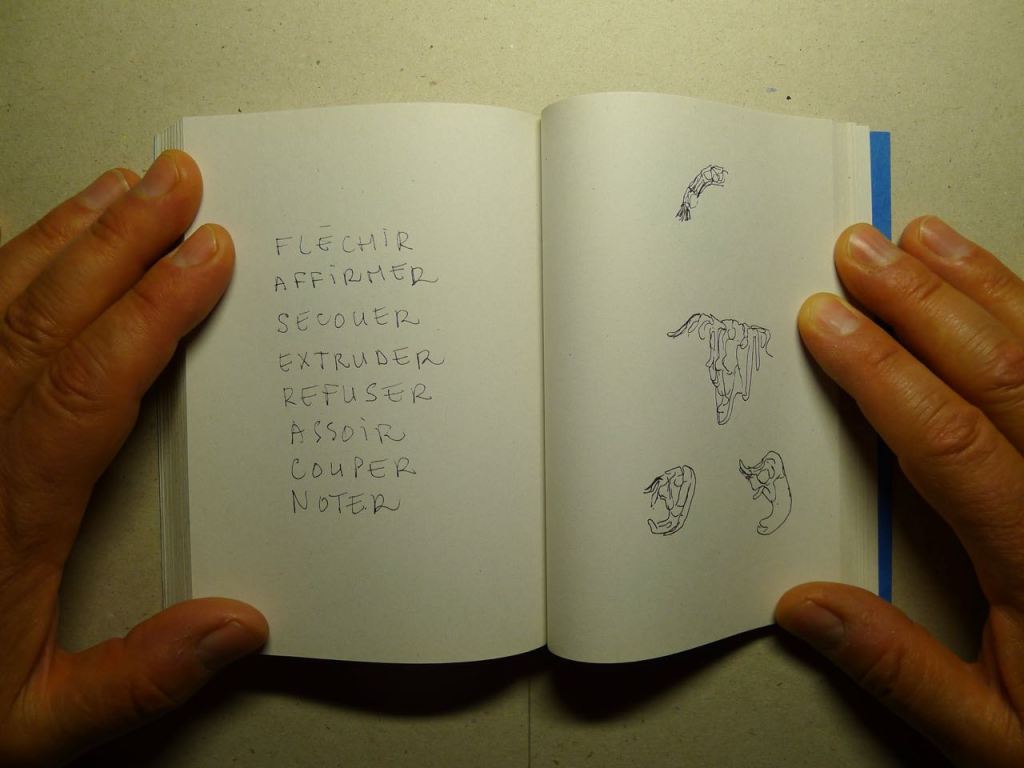 FLÉCHIR
AFFIRMER
SECOUER
EXTRUDER
REFUSER
ASSOIR
COUPER
NOTER